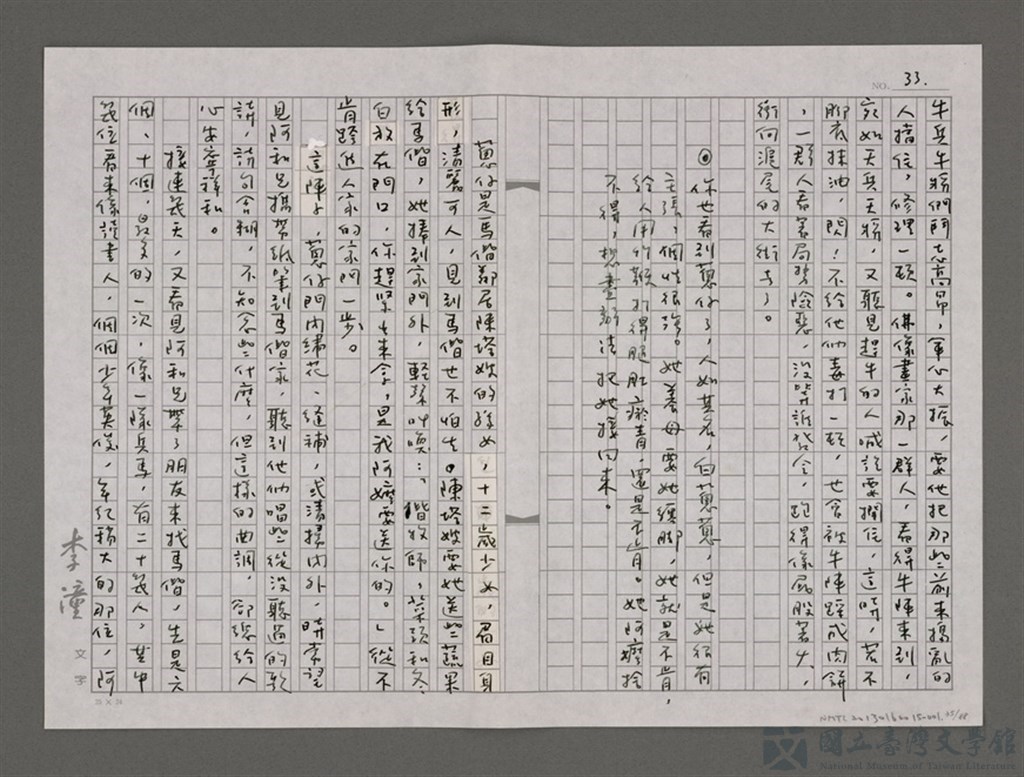 NO. 33.
牛兵牛將們鬥志高昂，軍心大振，要他把那些前來搗亂的
人擋住，修理一頓。偶像畫家那一群人，看得牛陣來到，
宛如天兵天將，又聽見趕牛的人喊說要攔住，這時，若不
腳底抹油，閃！不給他們毒打一頓，也會被牛陣踩成肉餅
，一群人看著局勢險惡，沒等誰發令，跑得像屁股著火，
衝向滬尾的大街了。
◎你也看到蔥仔了，人如其名，白蔥蔥，但是她很有
主張，個性很強。她養母要她纏腳，她就是不肯，
給人用竹鞭打得腿肚瘀青，還是不肯。她阿嬤捨
不得，想盡辦法把她接回來。
蔥仔是馬偕鄰居陳塔嫂的孫女，十二歲少女，眉目身
形，清麗可人，見到馬偕也不怕生。陳塔嫂要她送些蔬果
給馬偕，她捧到家門外，輕聲叫喚：「偕牧師，菜頭和冬
白放在門口，你趕緊出來拿，是我阿嬤要送你的。」從不
肯踏進人家的家門一步。
這陣子，蔥仔門內繡花、縫補，或清掃內外，時常望
見阿和兄攜帶紙筆到馬偕家，聽到他們唱些從沒聽過的歌
詩，詩句含糊，不知念些什麼，但這樣的曲調，卻總給人
心安寧靜和。
接連幾天，又看見阿和兄帶了朋友來找馬偕，先是六
個、十個，最多的一次，像一隊兵馬，有二十幾人，其中
幾位看來像讀書人，個個少年英俊，年紀稍大的那位，阿
李潼
文字
25 × 24
NMTL20130160015-001.45/68
國立臺灣文學館
National Museum of Taiwan Literature